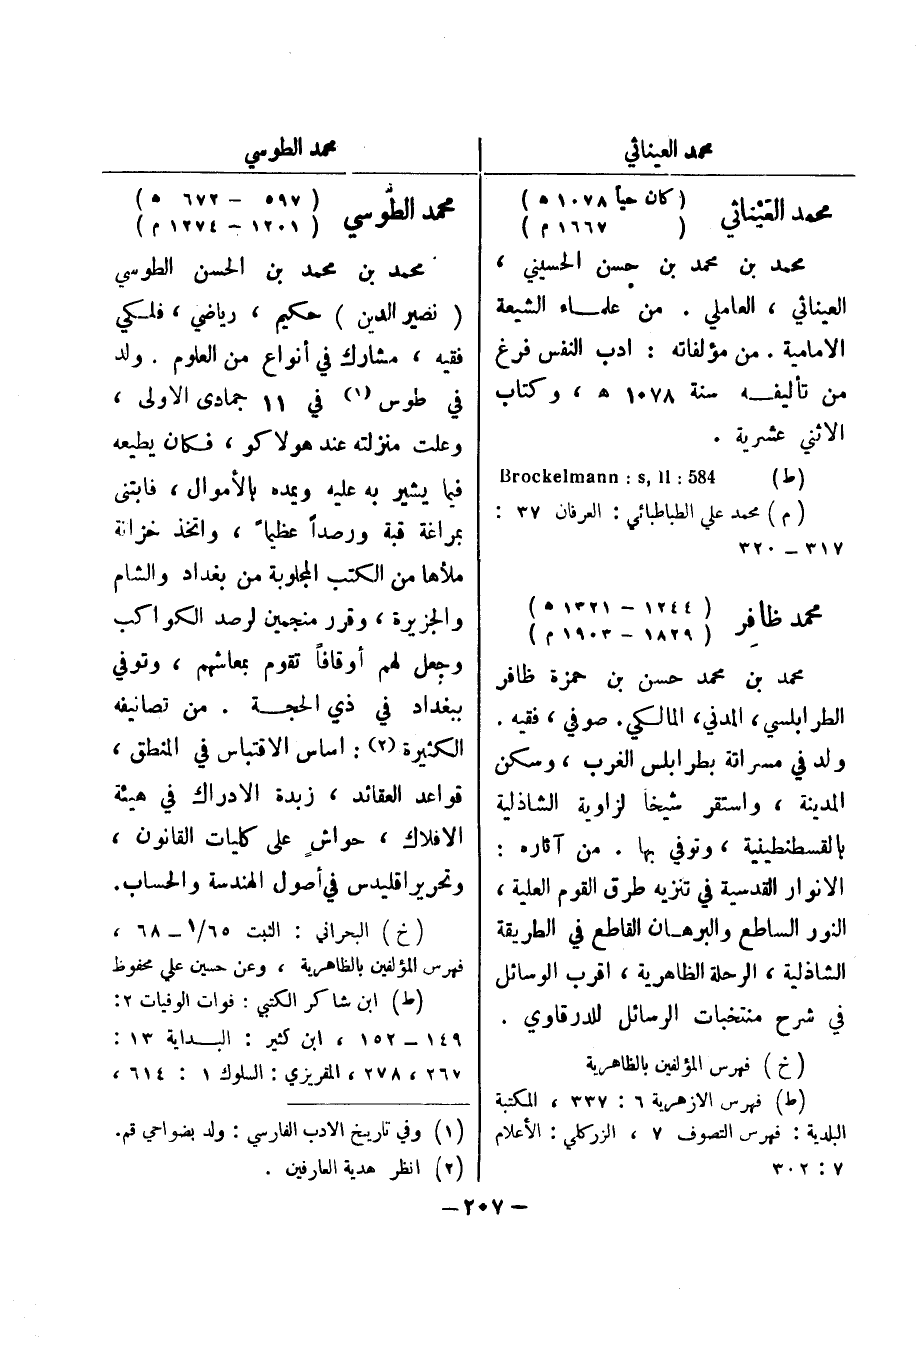 محمد العيناثي
محمد العَيْناثي ( كان حياً ١٠٧٨ ه )
( ١٦٦٧ م )
محمد بن محمد بن حسن الحسيني ،
العيناثي ، العاملي . من علماء الشيعة
الامامية . من مؤلفاته : ادب النفس فرغ
من تأليفه سنة ١٠٧٨ ه ، وكتاب
الاثني عشرية .
(ط) Brockelmann : s, II : 584
( م ) محمد علي الطباطبائي : العرفان ٣٧ :
٣١٧ – ٣٢٠
محمد ظافِر ( ١٢٤٤ – ١٣٢١ ه )
( ١٨٢٩ – ١٩٠٣ م )
محمد بن محمد حسن بن حمزة ظافر
الطرابلسي، المدني، المالكي. صوفي ، فقيه .
ولد في مسراتة بطرابلس الغرب ، وسكن
المدينة ، واستقر شيخاً لزاوية الشاذلية
بالقسطنطينية ، وتوفي بها . من آثاره :
الانوار القدسية في تنزيه طرق القوم العلية ،
النور الساطع والبرهان القاطع في الطريقة
الشاذلية ، الرحلة الظاهرية ، اقرب الوسائل
في شرح منتخبات الرسائل للدرقاوي .
( خ ) فهرس المؤلفين بالظاهرية
(ط) فهرس الازهرية ٦ : ٣٣٧ ، المكتبة
البلدية : فهرس التصوف ٧ ، الزركلي : الأعلام
٧ : ٣٠٢
محمد الطوسي
محمد الطُّوسي ( ٥٩٧ – ٦٧٢ ه )
( ١٢٠١ – ١٢٧٤ م )
محمد بن محمد بن الحسن الطوسي
( نصير الدين ) حكيم ، رياضي ، فلكي
فقيه ، مشارك في أنواع من العلوم . ولد
في طوس (١) في ١١ جمادى الاولى ،
وعلت منزلته عند هولاكو ، فكان يطيعه
فيما يشير به عليه ويمده بالأموال ، فابتنى
بمراغة قبة ورصداً عظيماً ، واتخذ خزانة
ملأها من الكتب المجلوبة من بغداد والشام
والجزيرة ، وقرر منجمين لرصد الكواكب
وجعل لهم أوقافاً تقوم بمعاشهم ، وتوفي
ببغداد في ذي الحجة . من تصانيفه
الكثيرة (٢) : اساس الاقتباس في المنطق ،
قواعد العقائد ، زبدة الادراك في هيئة
الافلاك ، حواشٍ على كليات القانون ،
وتحرير اقليدس في أصول الهندسة والحساب.
( خ ) البحراني : الثبت ١/٦٥ – ٦٨ ،
فهرس المؤلفين بالظاهرية ، وعن حسين علي محفوظ
(ط) ابن شاكر الكتبي : فوات الوفيات ٢:
١٤٩ – ١٥٢ ، ابن كثير : البداية ١٣ :
٢٦٧ ، ٢٧٨ ، المقريزي : السلوك ١ : ٦١٤ ،
(١) وفي تاريخ الادب الفارسي : ولد بضواحي قم.
(٢) انظر هدية العارفين .
– ٢٠٧ –